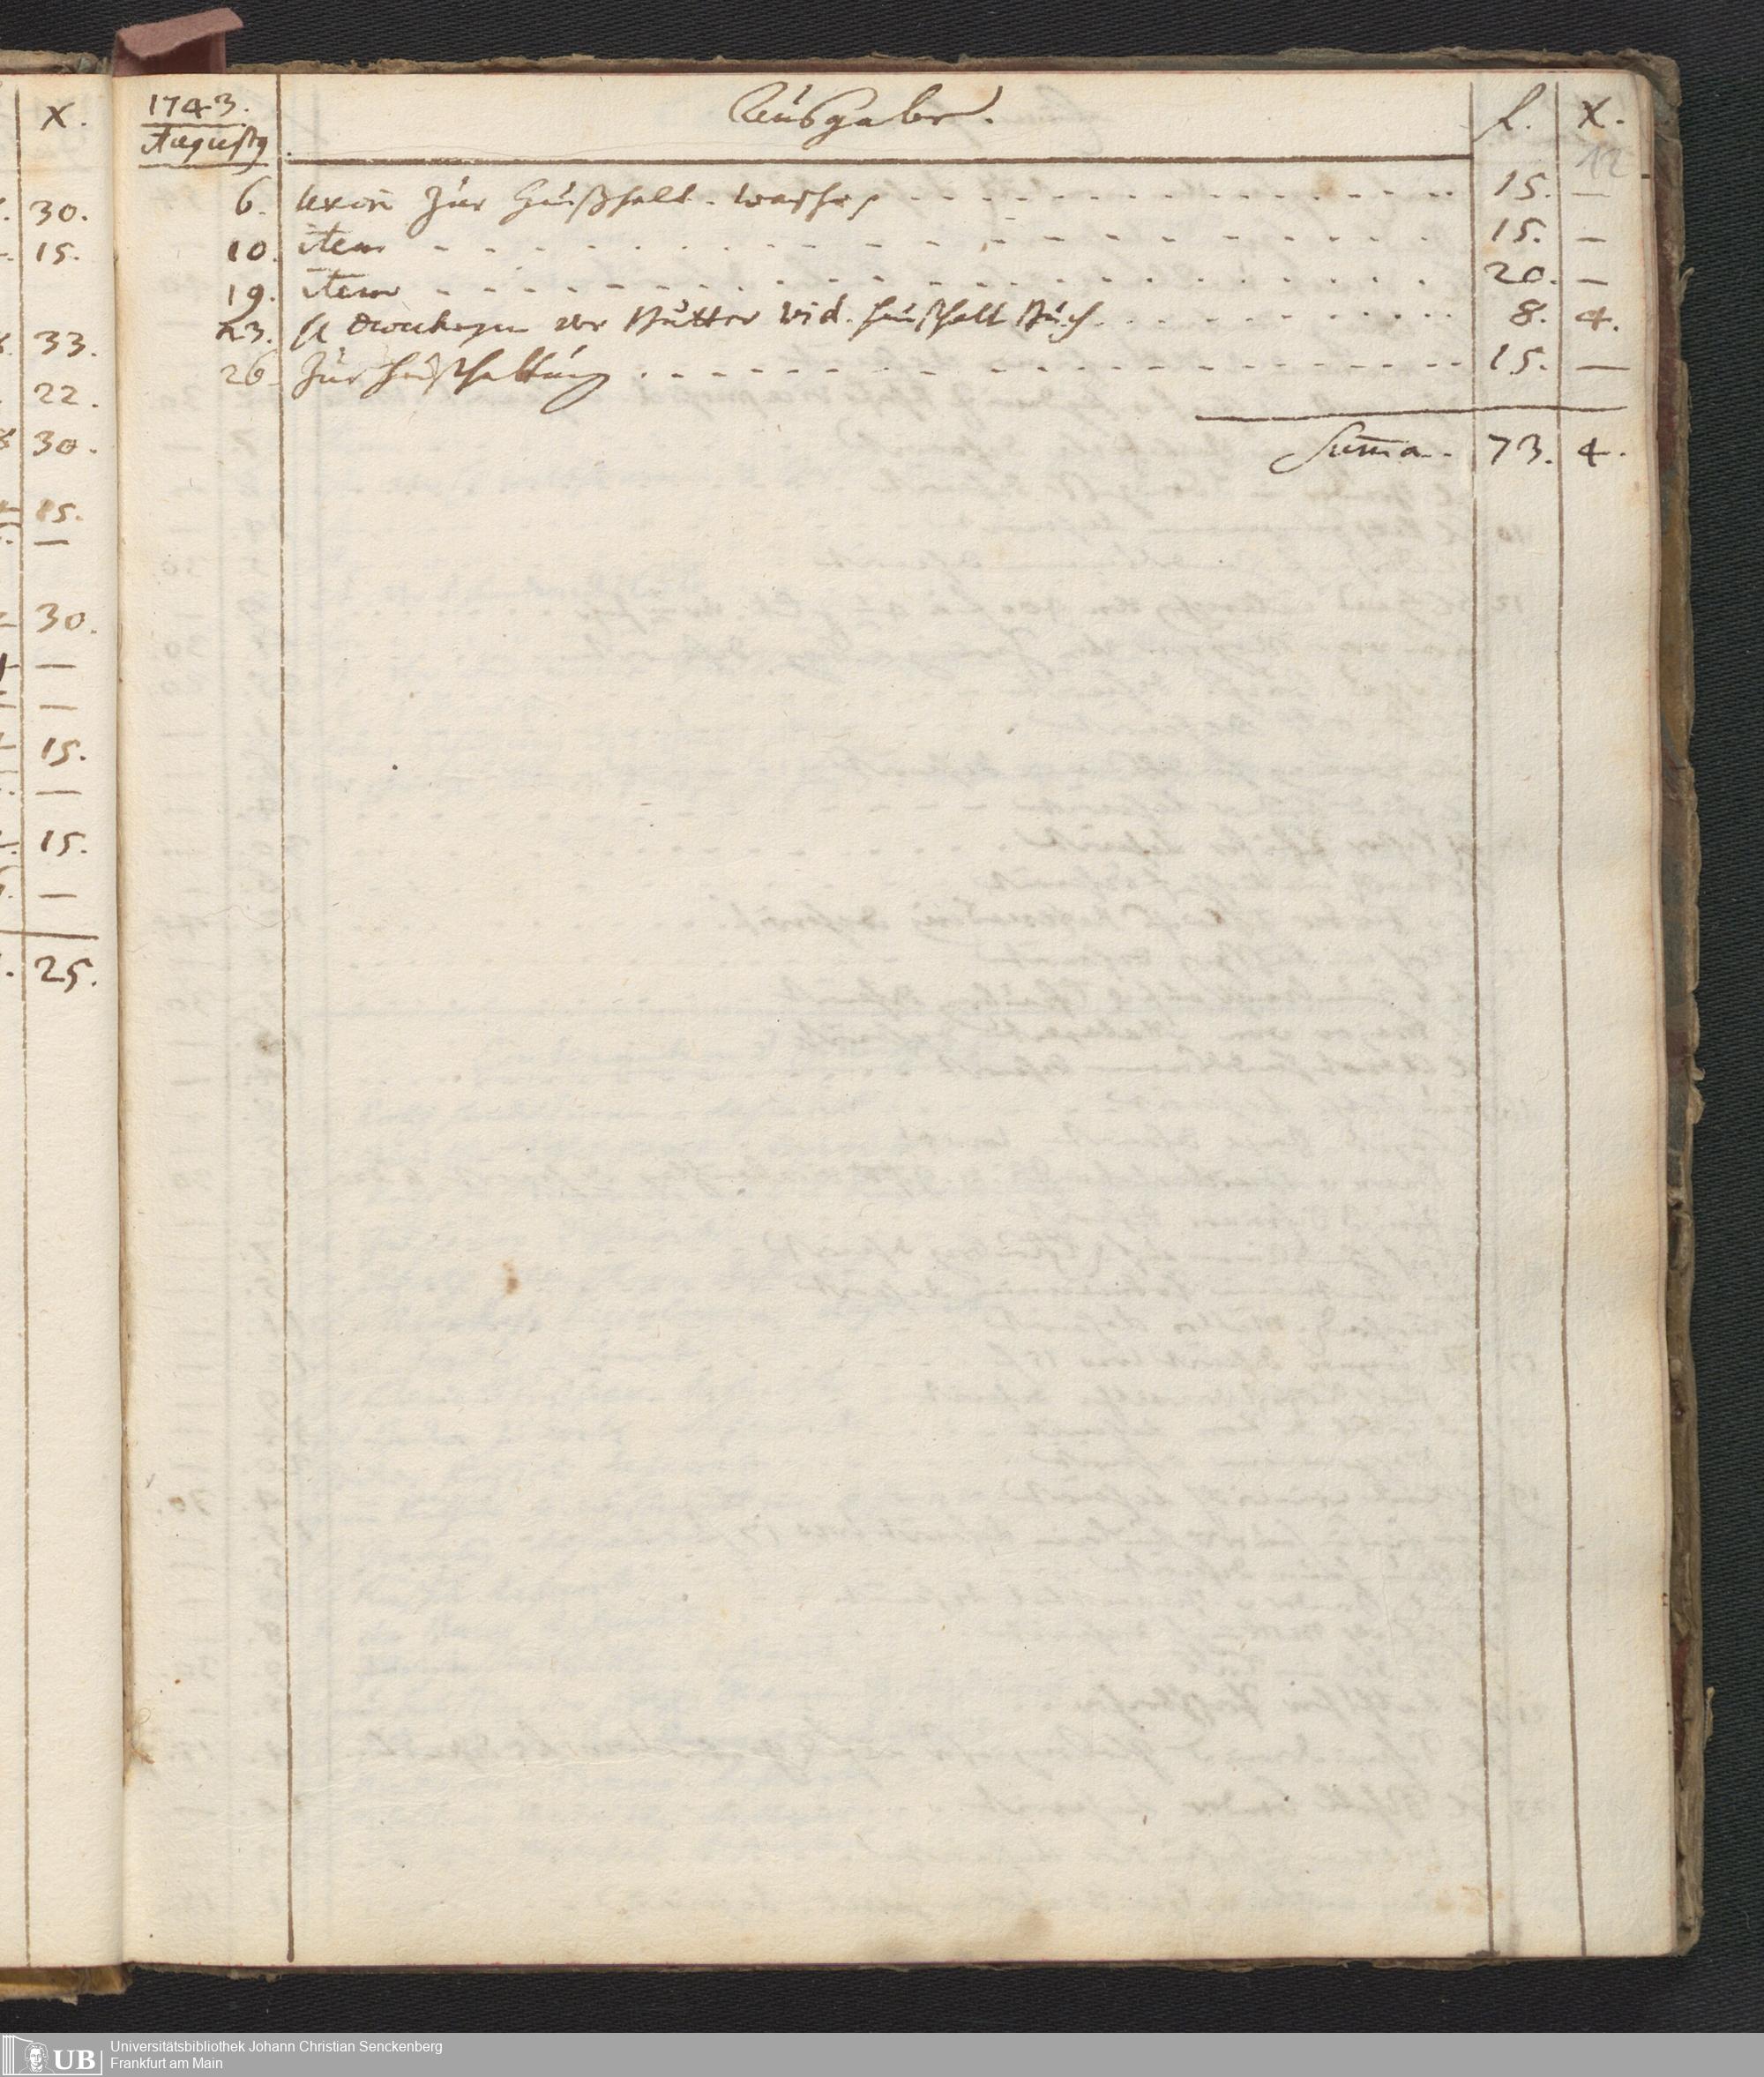 X.
30.
15.
33.
22.
30.
15.
—
30.
—
—
15.
—
15.
—
25.
1743.
Augustg
Ausgaben.
f.
X.
12
6. uxori zur Haußhalt. 15. —
10. item 15. —
19. item 20. —
23. der Butter vid. haußhalt Buch. 8. 4.
26. Zur haußhaltung 15. —
Sum̄a. 73. 4.
UB
Universitätsbibliothek Johann Christian Senckenberg
Frankfurt am Main